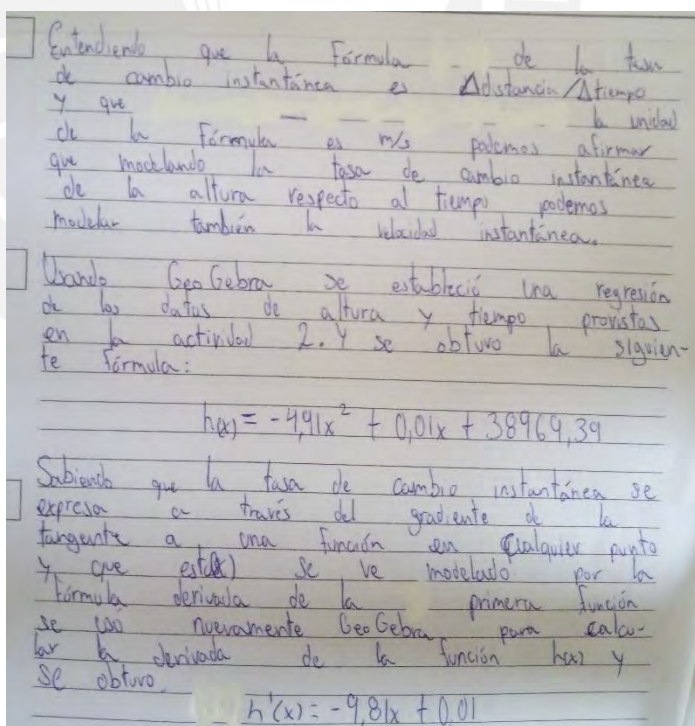 Entendiendo que la Fórmula de la tasa
de cambio instantánea es Δdistancia/Δtiempo
y que la unidad
de la Fórmula es m/s podemos afirmar
que modelando la tasa de cambio instantánea
de la altura respecto al tiempo podemos
modelar también la velocidad instantánea.
Usando GeoGebra se estableció una regresión
de los datos de altura y tiempo provistos
en la actividad 2. Y se obtuvo la siguien-
te fórmula:
h(x) = -4,91x² + 0,01x + 38969,39
Sabiendo que la tasa de cambio instantánea se
expresa a través del gradiente de la
tangente a una función en cualquier punto
y que se ve modelado por la
fórmula derivada de la primera función
se uso nuevamente GeoGebra para calcu-
lar la derivada de la función h(x) y
se obtuvo.
h'(x) = -9,81x + 0.01